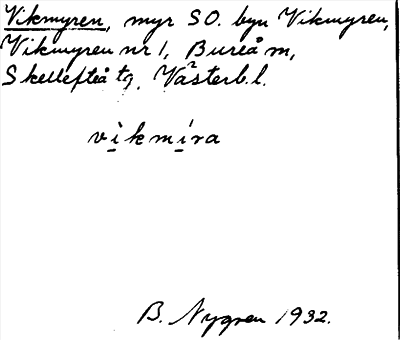 Vikmyren, myr SO. byn Vikmyren,
Vikmyren nr 1, Bureå m,
Skellefteå tg, Västerb.l.
vikmira
B. Nygren 1932.